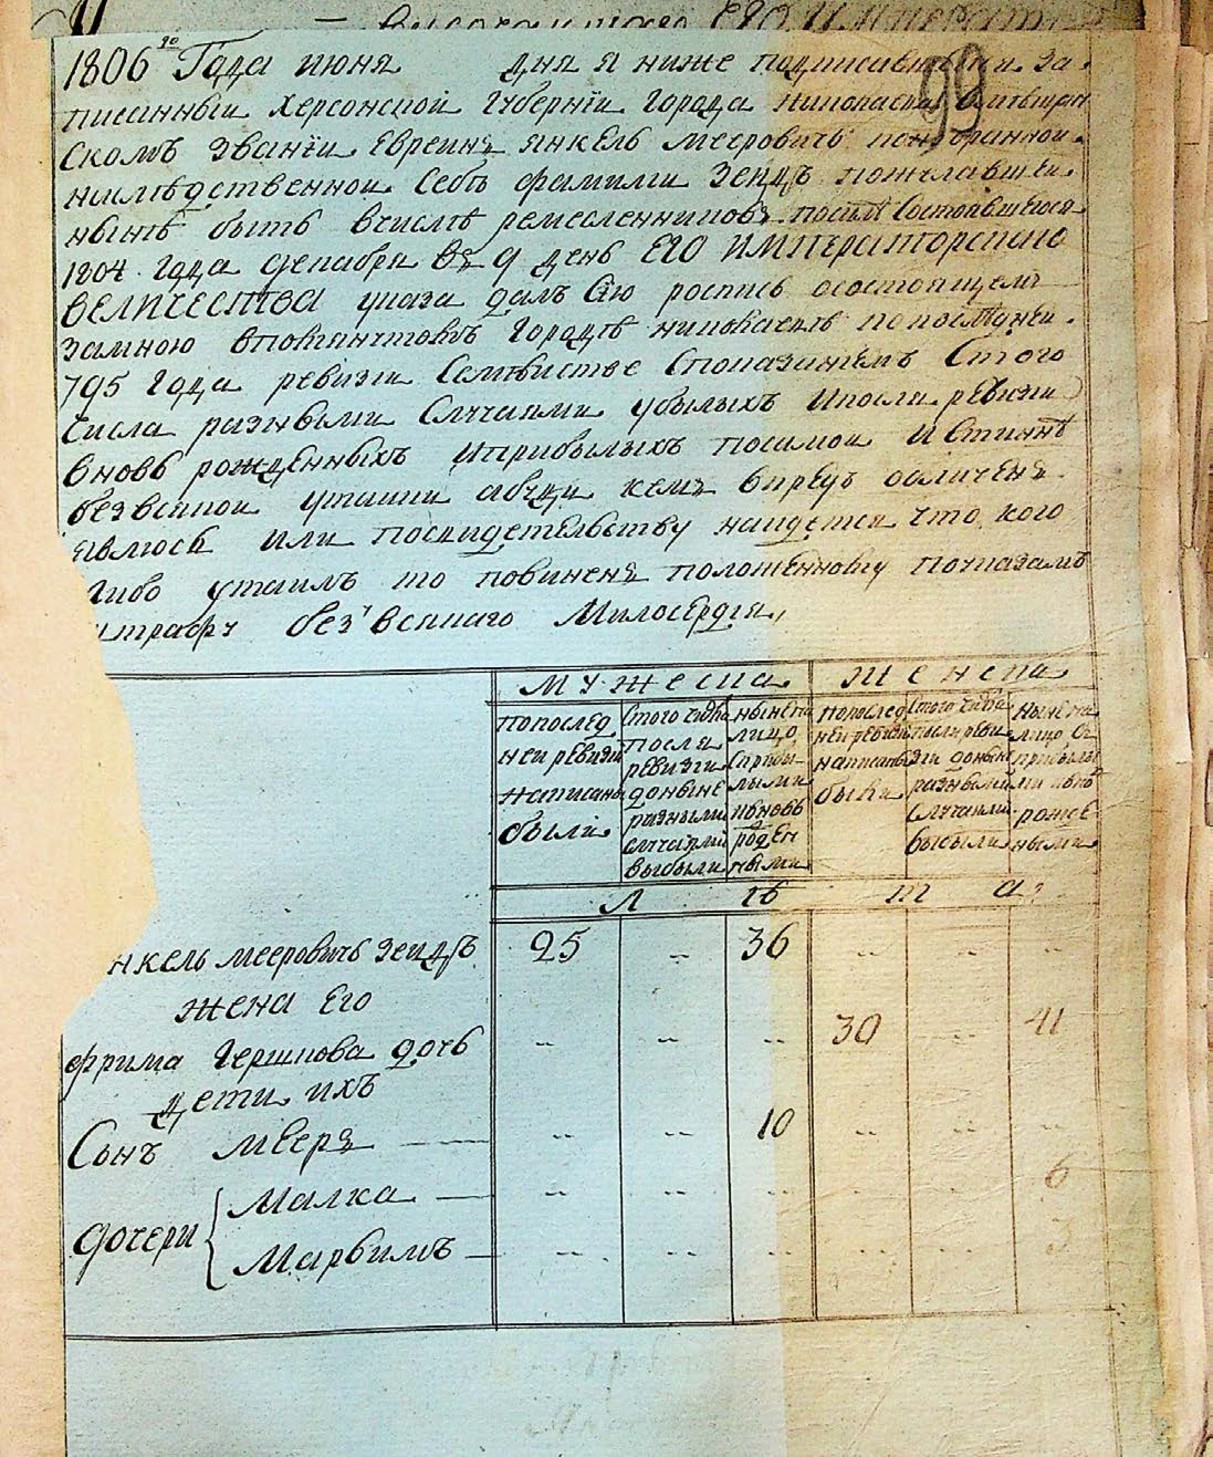 Высочайшаго ЕГО Императ
1806го Года июня дня я ниже подписавшейся за
писанный херсонской Губернїи Города Николаева вмещан
скомъ званїи Евреинъ янкель мееровичь поизбранной
наслѣдственной Себѣ фамилии Зеидъ пожелавшей
нынѣ быть вчислѣ ремесленниковъ посилѣ Состоявшегося
1804 Года декабря въ 9 день ЕГО ИМПЕРАТОРСКАГО
ВЕЛИЧЕСТВА указа далъ Сию роспись осостоящемъ
замною Городѣ николаевѣ попослѣдней
795 Года ревизги Семѣистве Споказанїемъ Стого
числа разными Случаями убылыхъ Ипосли ревизги
вновь рожденныхъ Иприбылыхъ посамой Истиннѣ
безвсякой утайки абуди кемъ впредъ обличенъ
явлюсь или посвидетельству найдется что кого
либо утаилъ то повиненъ положенному поуказамъ
штрафу без всякаго Милосердїя,
99
мужеска
женска
попослед
ней ревизги
написаны
были
Стого числа
после
ревизги
доныне
разными
случаями
выбыли
ныне на
лицо
Сприбы
лыми
ивновь
рожден
ными
попослед
ней ревизги
написаны
были
Стого числа
посли реви
зги доныне
разными
Случаями
выбыли
Ныне на
лицо Съ
прибылы
ми ивно
рожде
ными
Л ѣ т а:
нкель мееровичь Зеидъ 25 -- 36 -- -- --
жена Его
фрима Гершкова дочь -- -- -- 30 -- 41
дети ихъ
Сынъ мееръ -- -- 10 -- -- --
дочери { Малка -- -- -- -- -- 6
Марьимъ -- -- -- -- -- 3